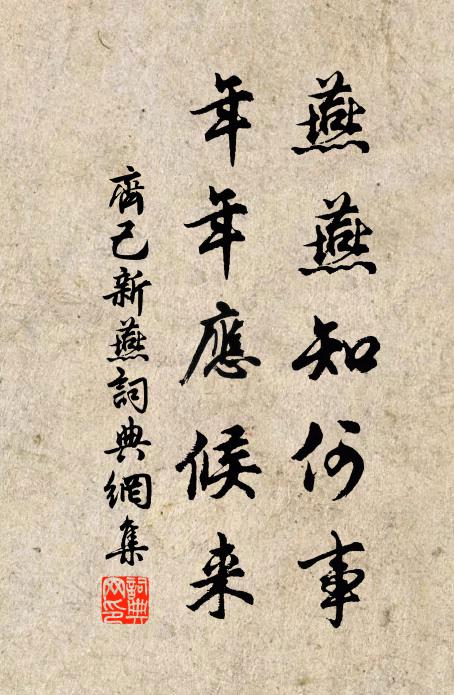 燕燕知何事
年年應候来
齊己新燕詞典網集
詞典
网印